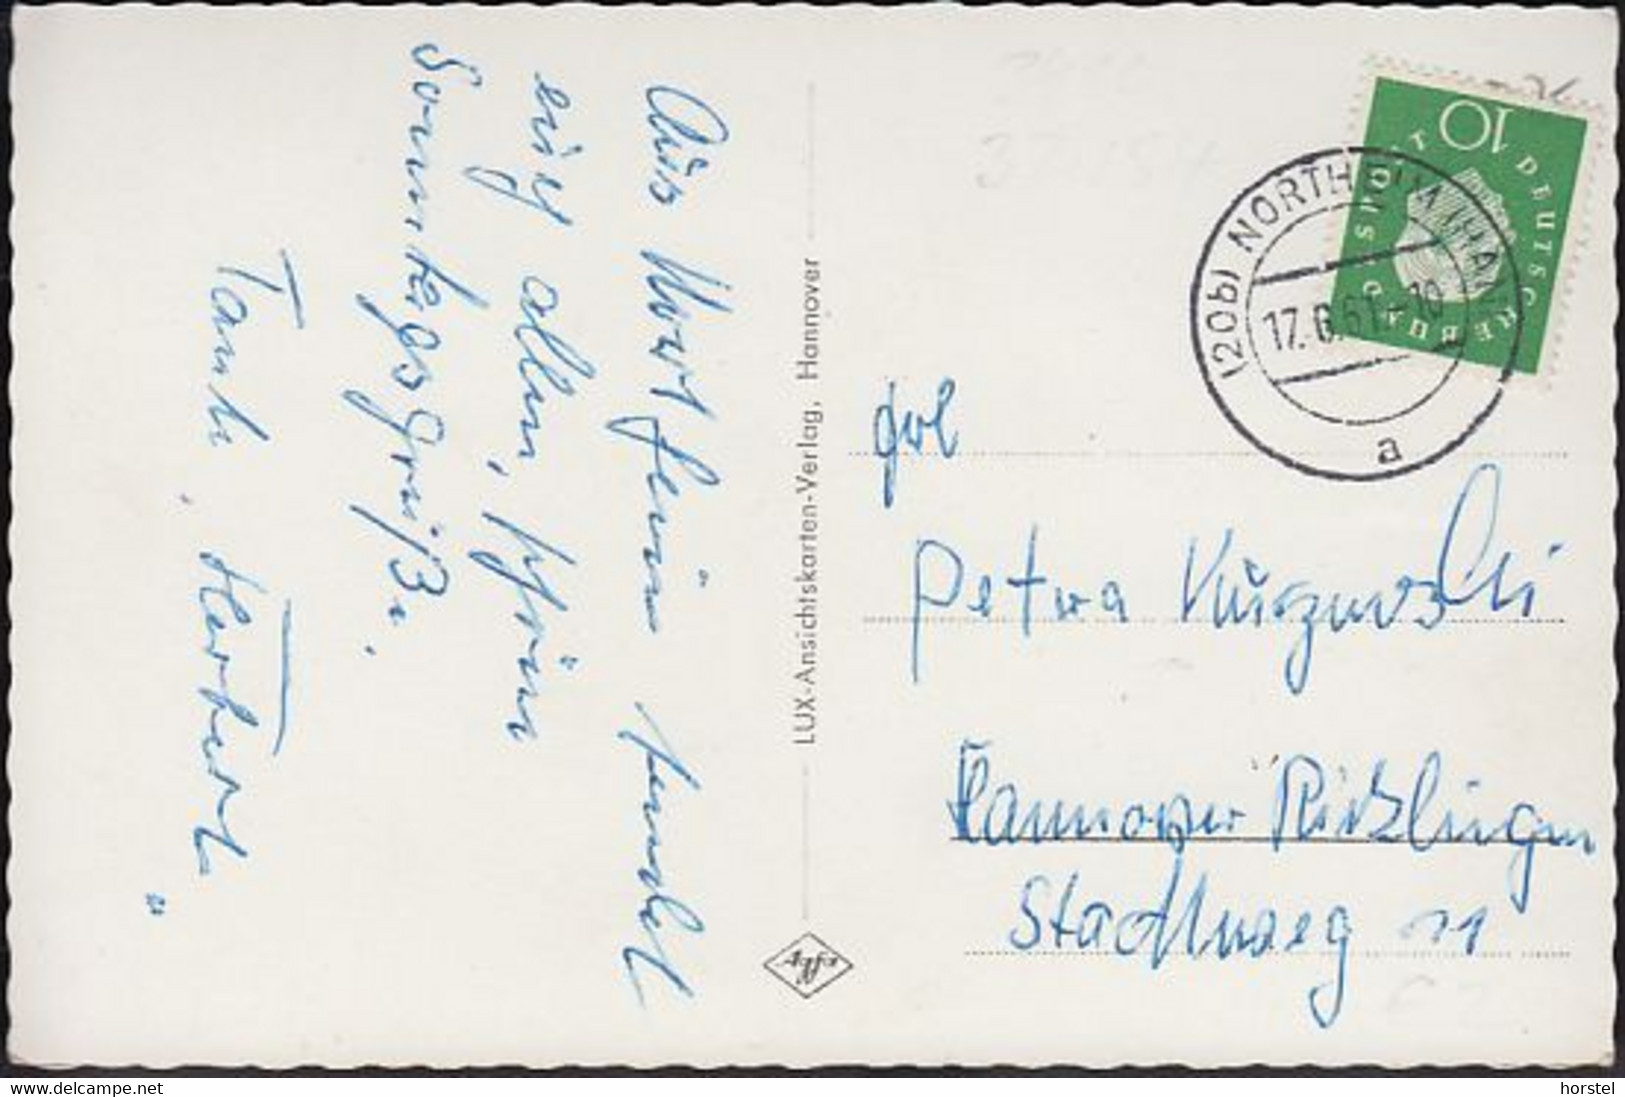 Aus Northeim sendet
euch allen schöne
Sonntagsgrüße.
Tante Herbert
LUX-Ansichtskarten-Verlag, Hannover
Agfa
10
DEUTSCHE BUNDESPOST
(20b) NORTHEIM (HAN)
17.6.61.-10
a
Frl
Petra
Hannover Ricklingen
Stadtweg 11
delcampe.net
horstel